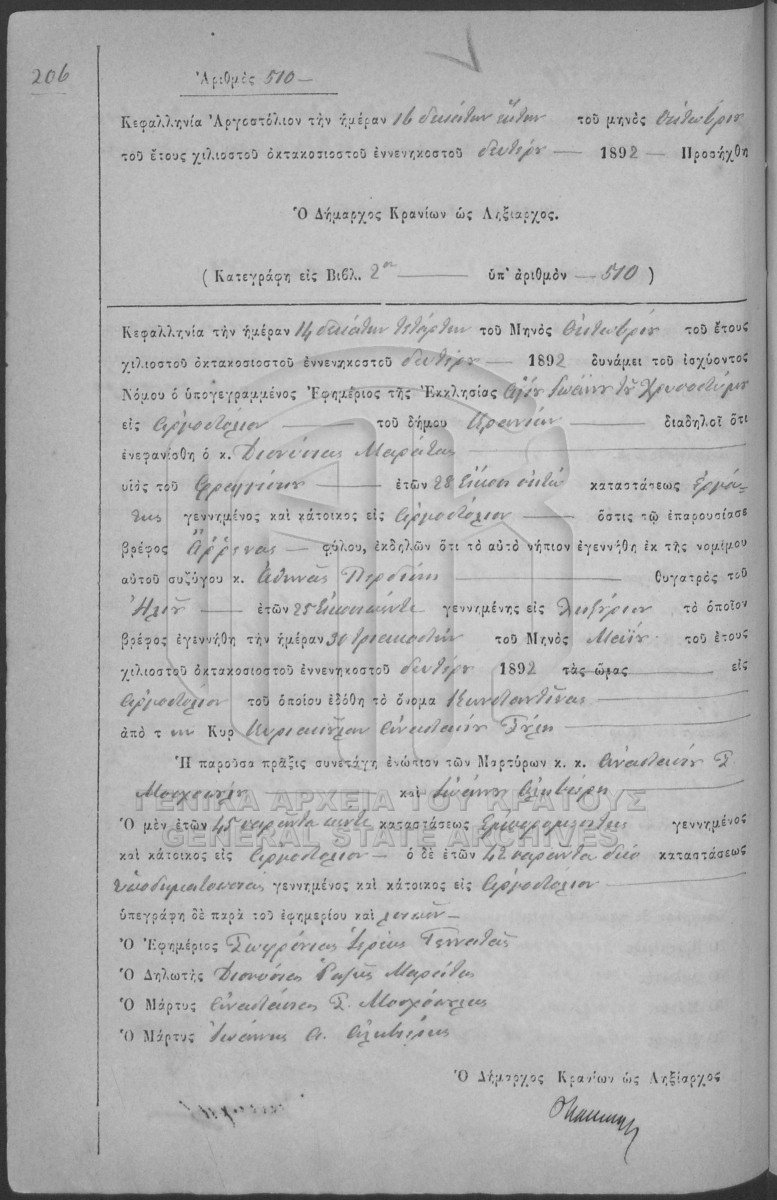 206
Ἀριθμὸς 510 —
Κεφαλληνία Ἀργοστόλιον τὴν ἡμέραν 16 δεκάτην ἕκτην τοῦ μηνὸς Ὀκτωβρίου
τοῦ ἔτους χιλιοστοῦ ὀκτακοσιοστοῦ ἐννενηκοστοῦ δευτέρου — 1892 — Προσήχθη
Ὁ Δήμαρχος Κρανίων ὡς Ληξίαρχος.
(Κατεγράφη εἰς Βιβλ. 2ον — ὑπ' ἀριθμὸν — 510)
Κεφαλληνία τὴν ἡμέραν 14 δεκάτην τετάρτην τοῦ Μηνὸς Ὀκτωβρίου τοῦ ἔτους
χιλιοστοῦ ὀκτακοσιοστοῦ ἐννενηκοστοῦ δευτέρου — 1892 δυνάμει τοῦ ἰσχύοντος
Νόμου ὁ ὑπογεγραμμένος Ἐφημέριος τῆς Ἐκκλησίας Ἁγίου Ἰωάννου τοῦ Χρυσοστόμου
εἰς Ἀργοστόλιον — τοῦ δήμου Κρανίων — διαδηλοῖ ὅτι
ἐνεφανίσθη ὁ κ. Διονύσιος Μαράτος —
υἱὸς τοῦ — ἐτῶν 28 εἴκοσι ὀκτώ καταστάσεως ἐργά-
της γεννημένος καὶ κάτοικος εἰς Ἀργοστόλιον — ὅστις τῷ ἐπαρουσίασε
βρέφος ἄρρενος — φύλου, ἐκδηλῶν ὅτι τὸ αὐτὸ νήπιον ἐγεννήθη ἐκ τῆς νομίμου
αὐτοῦ συζύγου κ. Ἀθηνᾶς — θυγατρὸς τοῦ
Ἠλία — ἐτῶν 25 εἴκοσι πέντε γεννημένης εἰς Ληξούριον τὸ ὁποῖον
βρέφος ἐγεννήθη τὴν ἡμέραν 30 τριακοστήν τοῦ Μηνὸς Μαΐου τοῦ ἔτους
χιλιοστοῦ ὀκτακοσιοστοῦ ἐννενηκοστοῦ δευτέρου 1892 τὰς ὥρας — εἰς
Ἀργοστόλιον τοῦ ὁποίου ἐδόθη τὸ ὄνομα Κωνσταντῖνος —
ἀπὸ τ ην Κυρ Κυριακοῦλαν Ἀναστασίου —
Ἡ παροῦσα πρᾶξις συνετάγη ἐνώπιον τῶν Μαρτύρων κ. κ. Ἀναστασίου Γ.
— καὶ Ἰωάννου —
ΓΕΝΙΚΑ ΑΡΧΕΙΑ ΤΟΥ ΚΡΑΤΟΥΣ
GENERAL STATE ARCHIVES
Ὁ μὲν ἐτῶν 45 σαράντα πέντε καταστάσεως γεννημένος
καὶ κάτοικος εἰς Ἀργοστόλιον — ὁ δὲ ἐτῶν 42 σαράντα δύο καταστάσεως
ὑποδηματοποιὸς γεννημένος καὶ κάτοικος εἰς Ἀργοστόλιον —
ὑπεγράφη δὲ παρὰ τοῦ ἐφημερίου καὶ λοιπῶν —
Ὁ Ἐφημέριος Σωφρόνιος Ἱερεὺς Γεννατᾶς
Ὁ Δηλωτὴς Διονύσιος Μαράτος
Ὁ Μάρτυς Ἀναστάσιος Γ.
Ὁ Μάρτυς Ἰωάννης Α.
Ὁ Δήμαρχος Κρανίων ὡς Ληξίαρχος